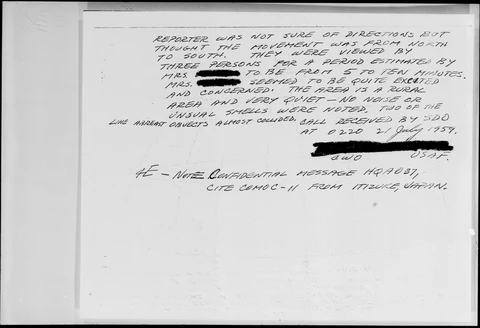 REPORTER WAS NOT SURE OF DIRECTIONS BUT
THOUGHT THE MOVEMENT WAS FROM NORTH
TO SOUTH. THEY WERE VIEWED BY
THREE PERSONS FOR A PERIOD ESTIMATED BY
MRS. TO BE FROM 5 TO TEN MINUTES.
MRS. SEEMED TO BE QUITE EXCITED
AND CONCERNED. THE AREA IS A RURAL
AREA AND VERY QUIET — NO NOISE OR
UNUSUAL SMELLS WERE NOTED. TWO OF THE
LIKE OBJECTS ALMOST COLLIDED. CALL RECEIVED BY SDO
AT 0220 21 July 1959.
CWO USAF.
4E — NOTE CONFIDENTIAL MESSAGE HQ
CITE COMOC-11 FROM ITIZUKE, JAPAN.